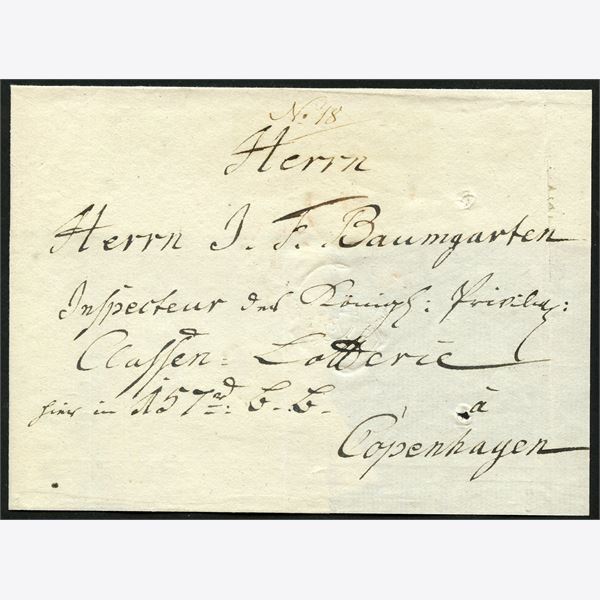 No. 18
Herrn
Herrn J. F. Baumgarten
Inspecteur der Königl: Privileg:
Classen-Lotterie
hier in 157 rd: b. b.
à
Copenhagen